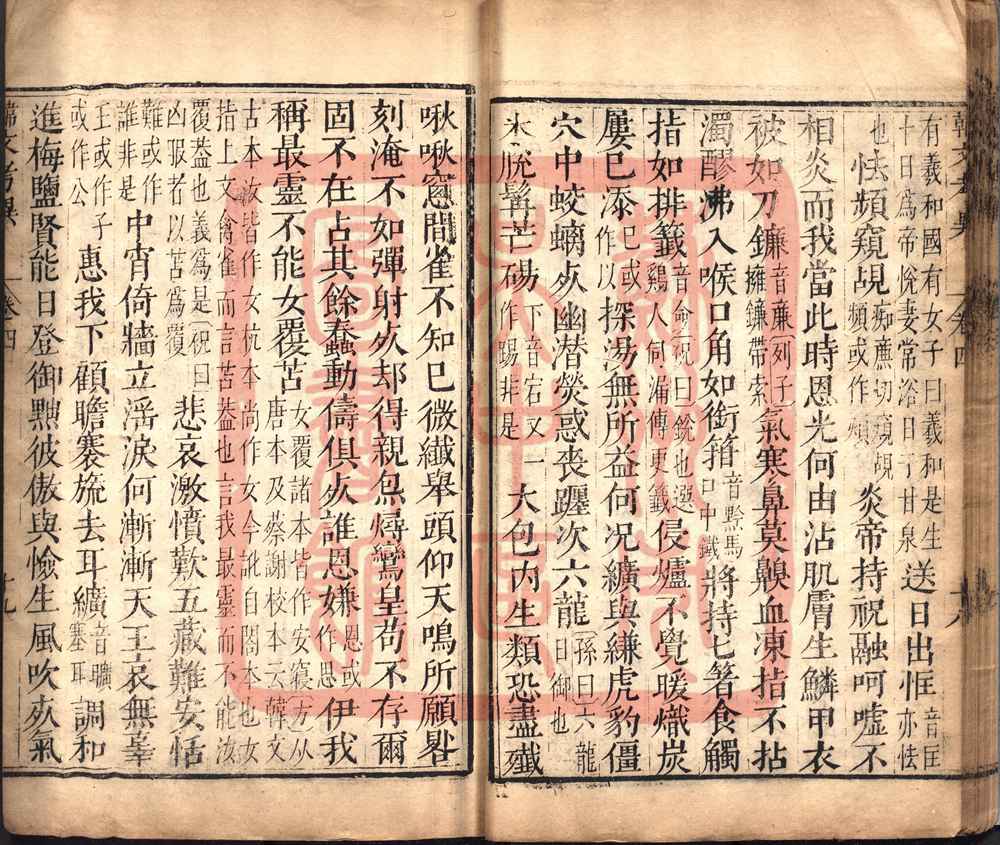 韓文考異 卷四 十八
有義和國有女子曰義和是生十日爲帝悅妻常浴日于甘泉送日出恇音匡亦怯
也怯頻窺覘痴廉切窺覘頻或作煩炎帝持祝融呵嘘不
相炎而我當此時恩光何由沾肌膚生鱗甲衣
被如刀鐮音廉列子擁鐮帶索氣寒鼻莫齅血凍指不拈
濁醪沸入喉口角如銜箝音黚馬口中鐵將持匕箸食觸
指如排籤音僉祝曰銳也選雞人伺漏傳更籤侵爐不覺暖熾炭
屢已添已或作以探湯無所益何况纊與縑虎豹僵
穴中蛟螭死幽潜熒惑喪躔次六龍孫曰六龍日御也
氷脫髯芒碭下音宕又一作踢非是大包内生類恐盡殱
啾啾窻間雀不知已微纎舉頭仰天鳴所願晷
刻淹不如彈射死却得親炰燖鸞皇苟不存爾
固不在占其餘蠢動儔俱死誰恩嫌恩或作思伊我
稱最靈不能女覆苫女覆諸本皆作安寢方从唐本及蔡謝校本云韓文
古本汝皆作女杭本尚作女今訛白閣本也女指上文禽雀而言苫葢也言我最靈而不能汝
覆葢也義爲是祝曰凶服者以苫爲覆悲哀激憤歎五藏難安恬
難或作誰非是中宵倚牆立淫淚何漸漸天王哀無辜
王或作子或作公惠我下顧瞻褰旒去耳纊音曠塞耳調和
進梅鹽賢能日登御黜彼傲與憸生風吹死氣
韓文考異 卷四 十九